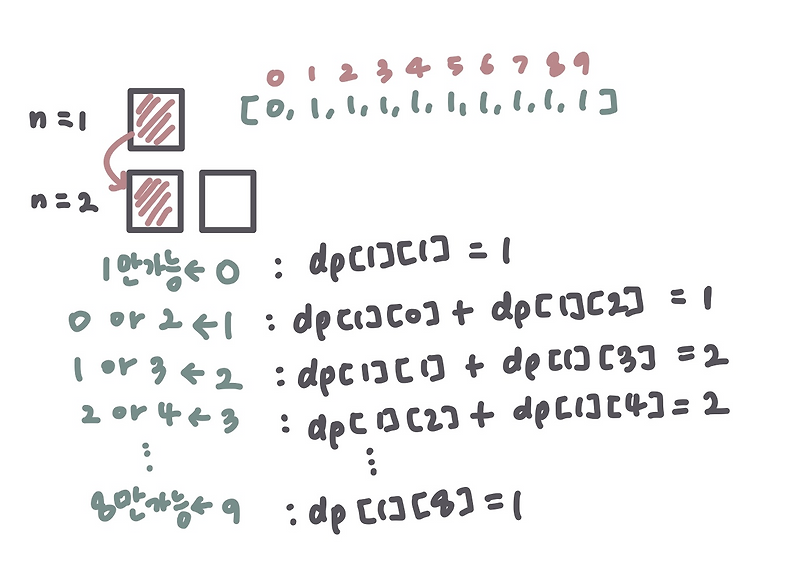 0 1 2 3 4 5 6 7 8 9
n=1 [0, 1, 1, 1, 1, 1, 1, 1, 1, 1]
n=2
1만가능←0 : dp[1][1] = 1
0 or 2←1 : dp[1][0] + dp[1][2] = 1
1 or 3←2 : dp[1][1] + dp[1][3] = 2
2 or 4←3 : dp[1][2] + dp[1][4] = 2
⋮ ⋮
8만가능←9 : dp[1][8] = 1